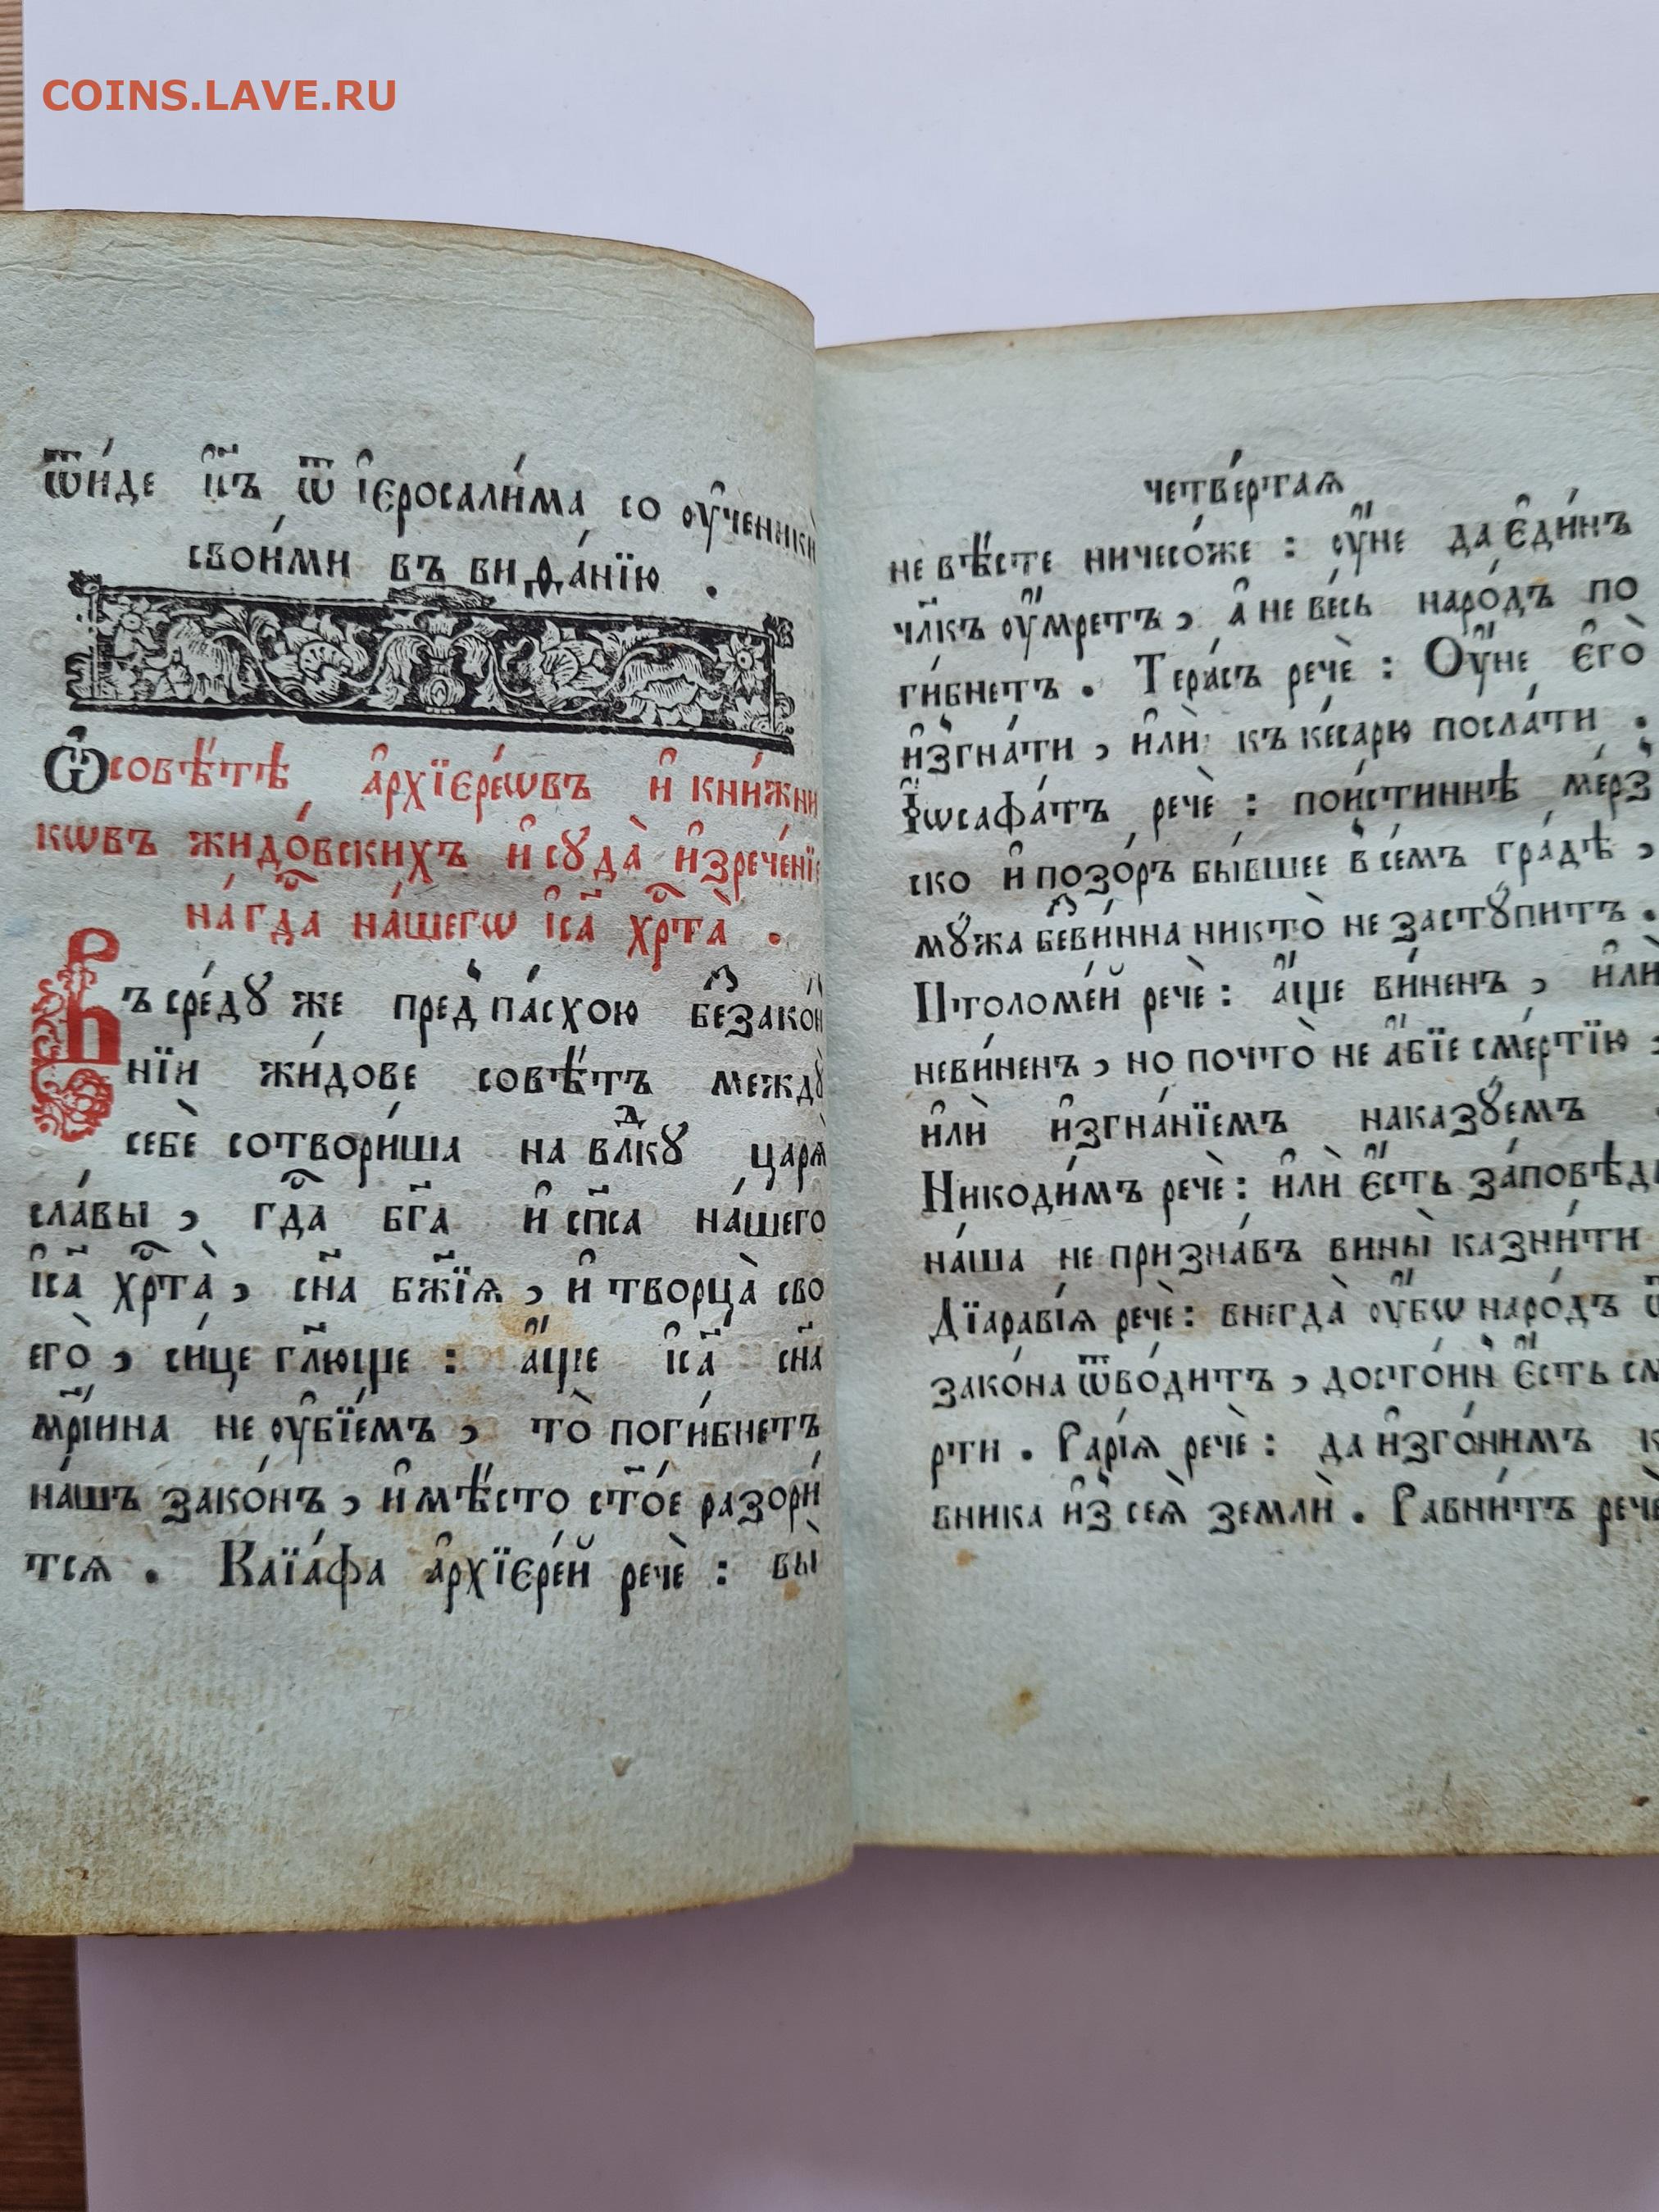 COINS.LAVE.RU
ѿи́де і҆с҃ъ ѿ і҆єросали́ма со ᲂу҆ченикѝ
свои́ми въ виѳа́нїю .
Ѽ совѣ́тѣ а҆рхїєре́ѡвъ и҆ кни́жни
кѡвъ жидо́вскихъ и҆ сꙋда̀ и҆зрече́нїе
на гдⷭ҇а на́шегѡ і҆с҃а хрⷭ҇та̀ .
Въ сре́дꙋ же пред̾ па́схою беззако́н
нїи жи́дове совѣ́тъ междꙋ̀
себѐ сотвори́ша на влⷣкꙋ царѧ̀
сла́вы , гдⷭ҇а бг҃а и҆ сп҃са на́шего
і҆с҃а хрⷭ҇та̀ , сн҃а бж҃їѧ , и҆ творца̀ сво
его̀ , си́це гл҃юще : а҆́ще і҆с҃а сн҃а
мр҃і́ина не ᲂу҆бїе́мъ , то̀ поги́бнетъ
на́шъ зако́нъ , и҆ мѣ́сто ст҃о́е разори́
тсѧ . Каїа́фа а҆рхїєре́й речѐ : вы̀
четве́ртаѧ
не вѣ́сте ничесо́же : ᲂу҆́не да є҆ди́нъ
чл҃къ ᲂу҆́мретъ , а҆ не ве́сь наро́дъ по
ги́бнетъ . Тера́съ речѐ : Оу҆́не є҆го̀
и҆згна́ти , и҆лѝ къ ке́сарю посла́ти .
І҆ѡсафа́тъ речѐ : пои́стиннѣ ме́рз
ско и҆ позо́ръ бы́вшее в̾ се́мъ гра́дѣ ,
мꙋ́жа безви́нна никто̀ не застꙋ́питъ .
Птоломе́й речѐ : а҆́ще ви́ненъ , и҆лѝ
неви́ненъ , но почто̀ не а҆́бїе сме́ртїю ,
и҆лѝ и҆згна́нїемъ наказꙋ́емъ .
Никоди́мъ речѐ : и҆лѝ є҆́сть за́повѣдь
на́ша не призна́въ вины̀ казни́ти
Дїара́вїѧ речѐ : внегда̀ ᲂу҆́бѡ наро́дъ ѿ
зако́на ѿво́дитъ , досто́ин̾ є҆́сть см
рти . Рарі́ѧ речѐ : да и҆зго́нимъ к
вника и҆з̾ сеѧ̀ землѝ . Равни́тъ речѐ